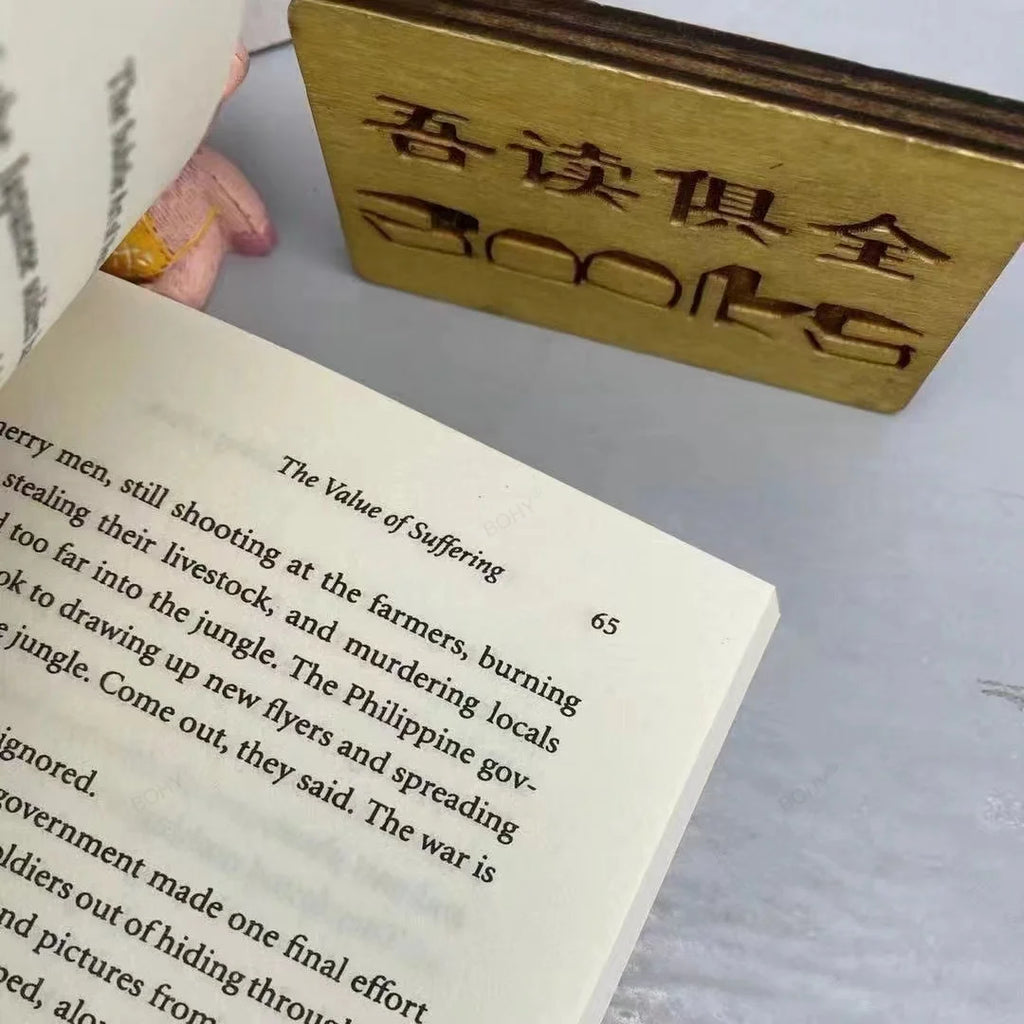 吾读俱全
Books
The Value of Suffering
65
merry men, still shooting at the farmers, burning
stealing their livestock, and murdering locals
too far into the jungle. The Philippine gov-
to drawing up new flyers and spreading
jungle. Come out, they said. The war is
ignored.
government made one final effort
out of hiding through
pictures from
BOHY
BOHY
BOHY